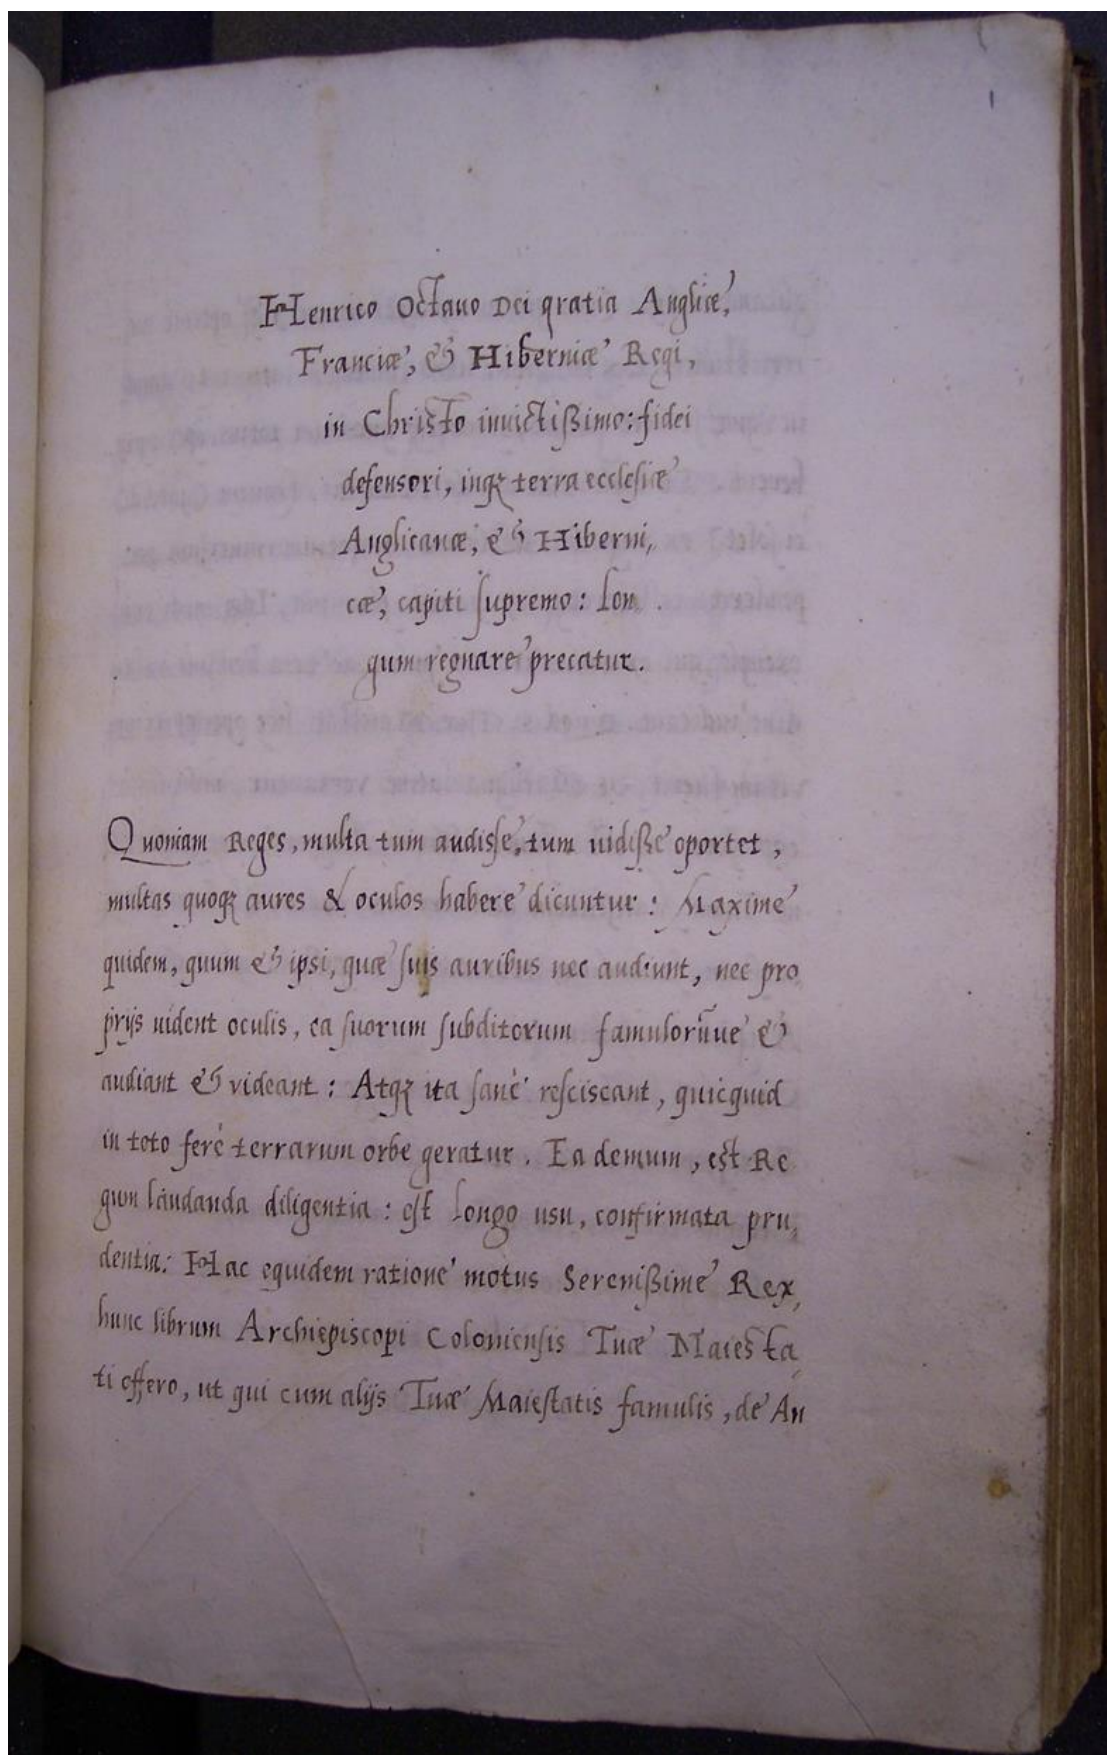 1
Henrico Octauo Dei gratia Angliæ,
Franciæ, & Hiberniæ Regi,
in Christo inuictißimo: fidei
defensori, inqꝫ terra ecclesiæ
Anglicanæ, & Hiberni,
cæ, capiti supremo: Lon
gum regnare precatur.
Quoniam Reges, multa tum audisse, tum uidiße oportet,
multas quoqꝫ aures & oculos habere dicuntur: Maxime
quidem, quum & ipsi, quæ suis auribus nec audiunt, nec pro
prijs uident oculis, ea suorum subditorum famulorũue &
audiant & videant: Atqꝫ ita sanè resciscant, quicquid
in toto ferè terrarum orbe geratur. Ea demum, est Re
gum laudanda diligentia: est longo usu, confirmata pru,
dentia: Hac equidem ratione motus Serenißime Rex,
hunc librum Archiepiscopi Coloniensis Tuæ Maiesta,
ti offero, ut qui cum alijs Tuæ Maiestatis famulis, de An